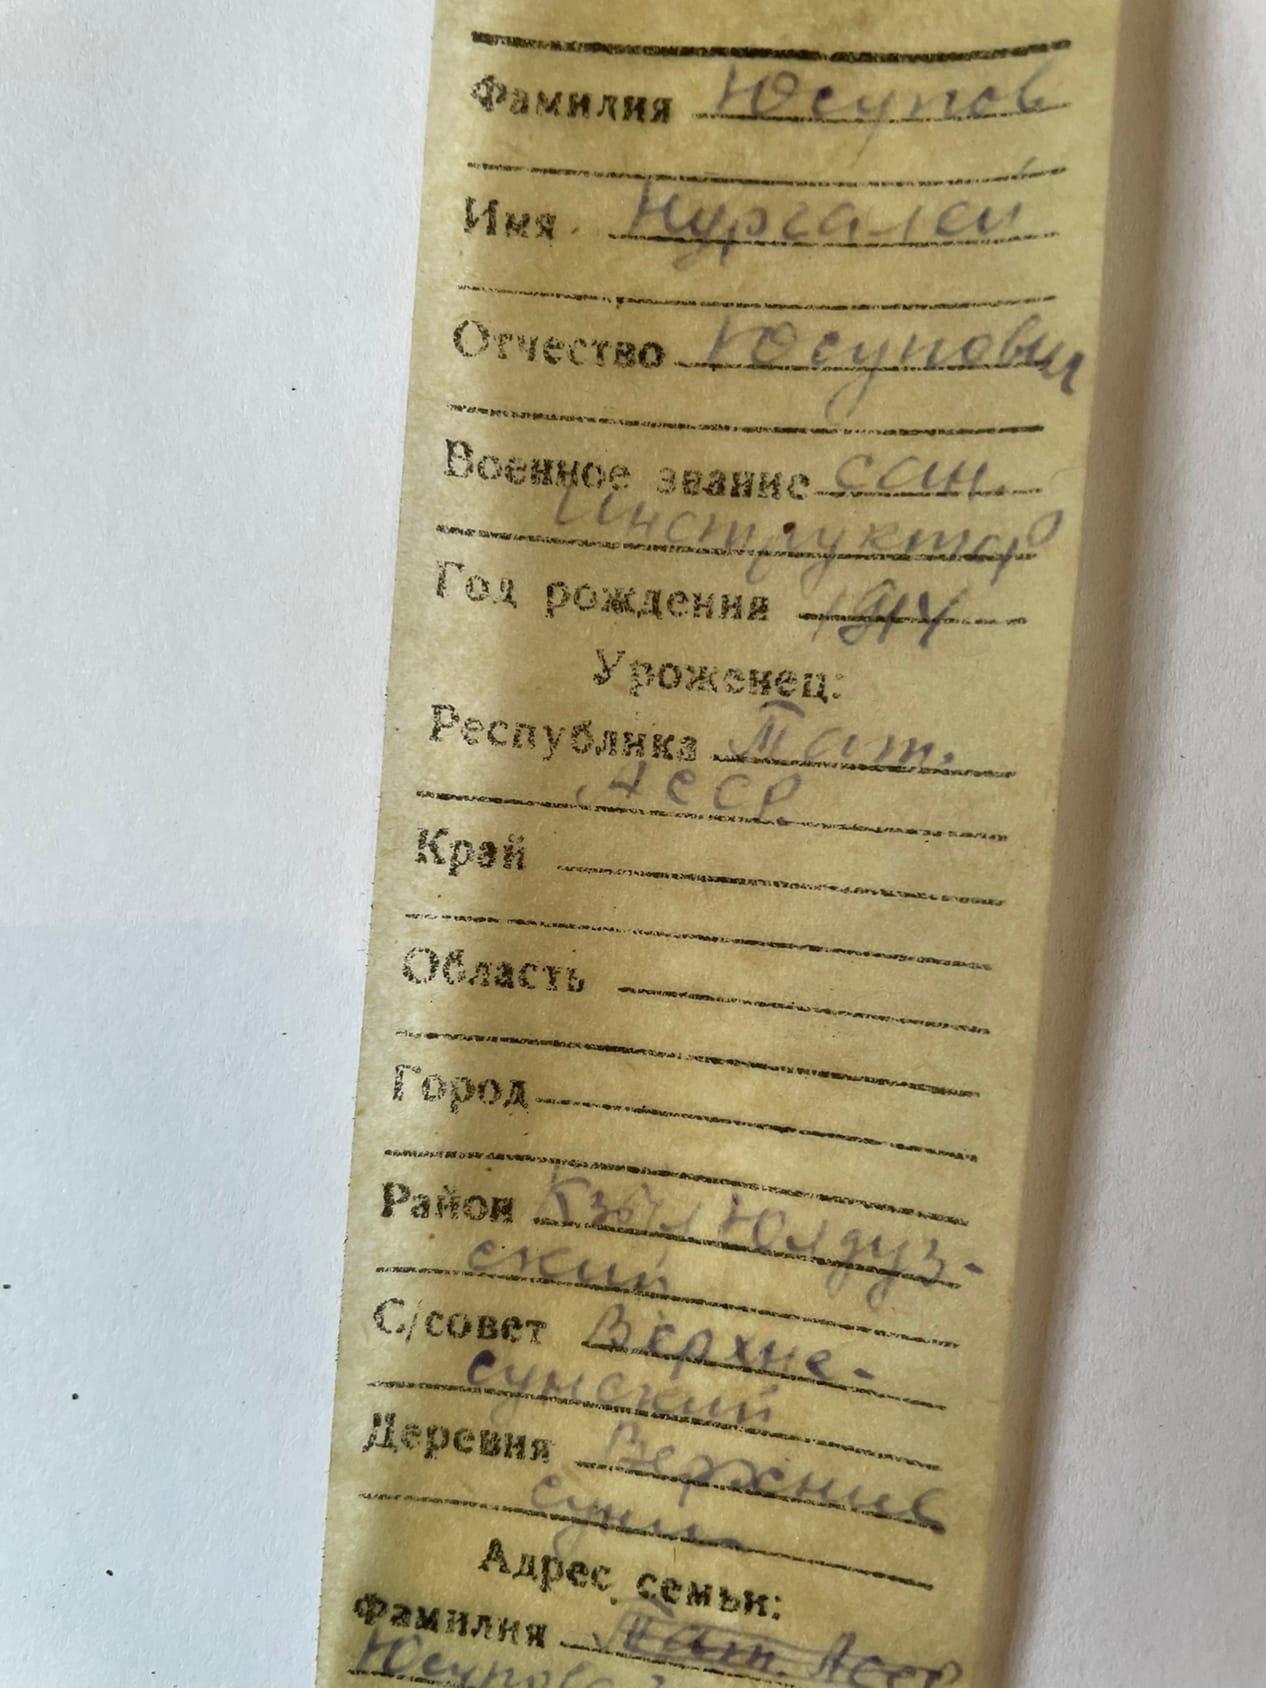 Фамилия Юсупов
Имя Нургалей
Отчество Юсупович
Военное звание сан.
Инструктор
Год рождения 1914
Уроженец:
Республика Тат.
АССР
Край
Область
Город
Район Кзыл Юлдуз-
ский
С/совет Верхне-
сунский
Деревня Верхние
суни
Адрес семьи:
Фамилия Тат. Асср
Юсупова